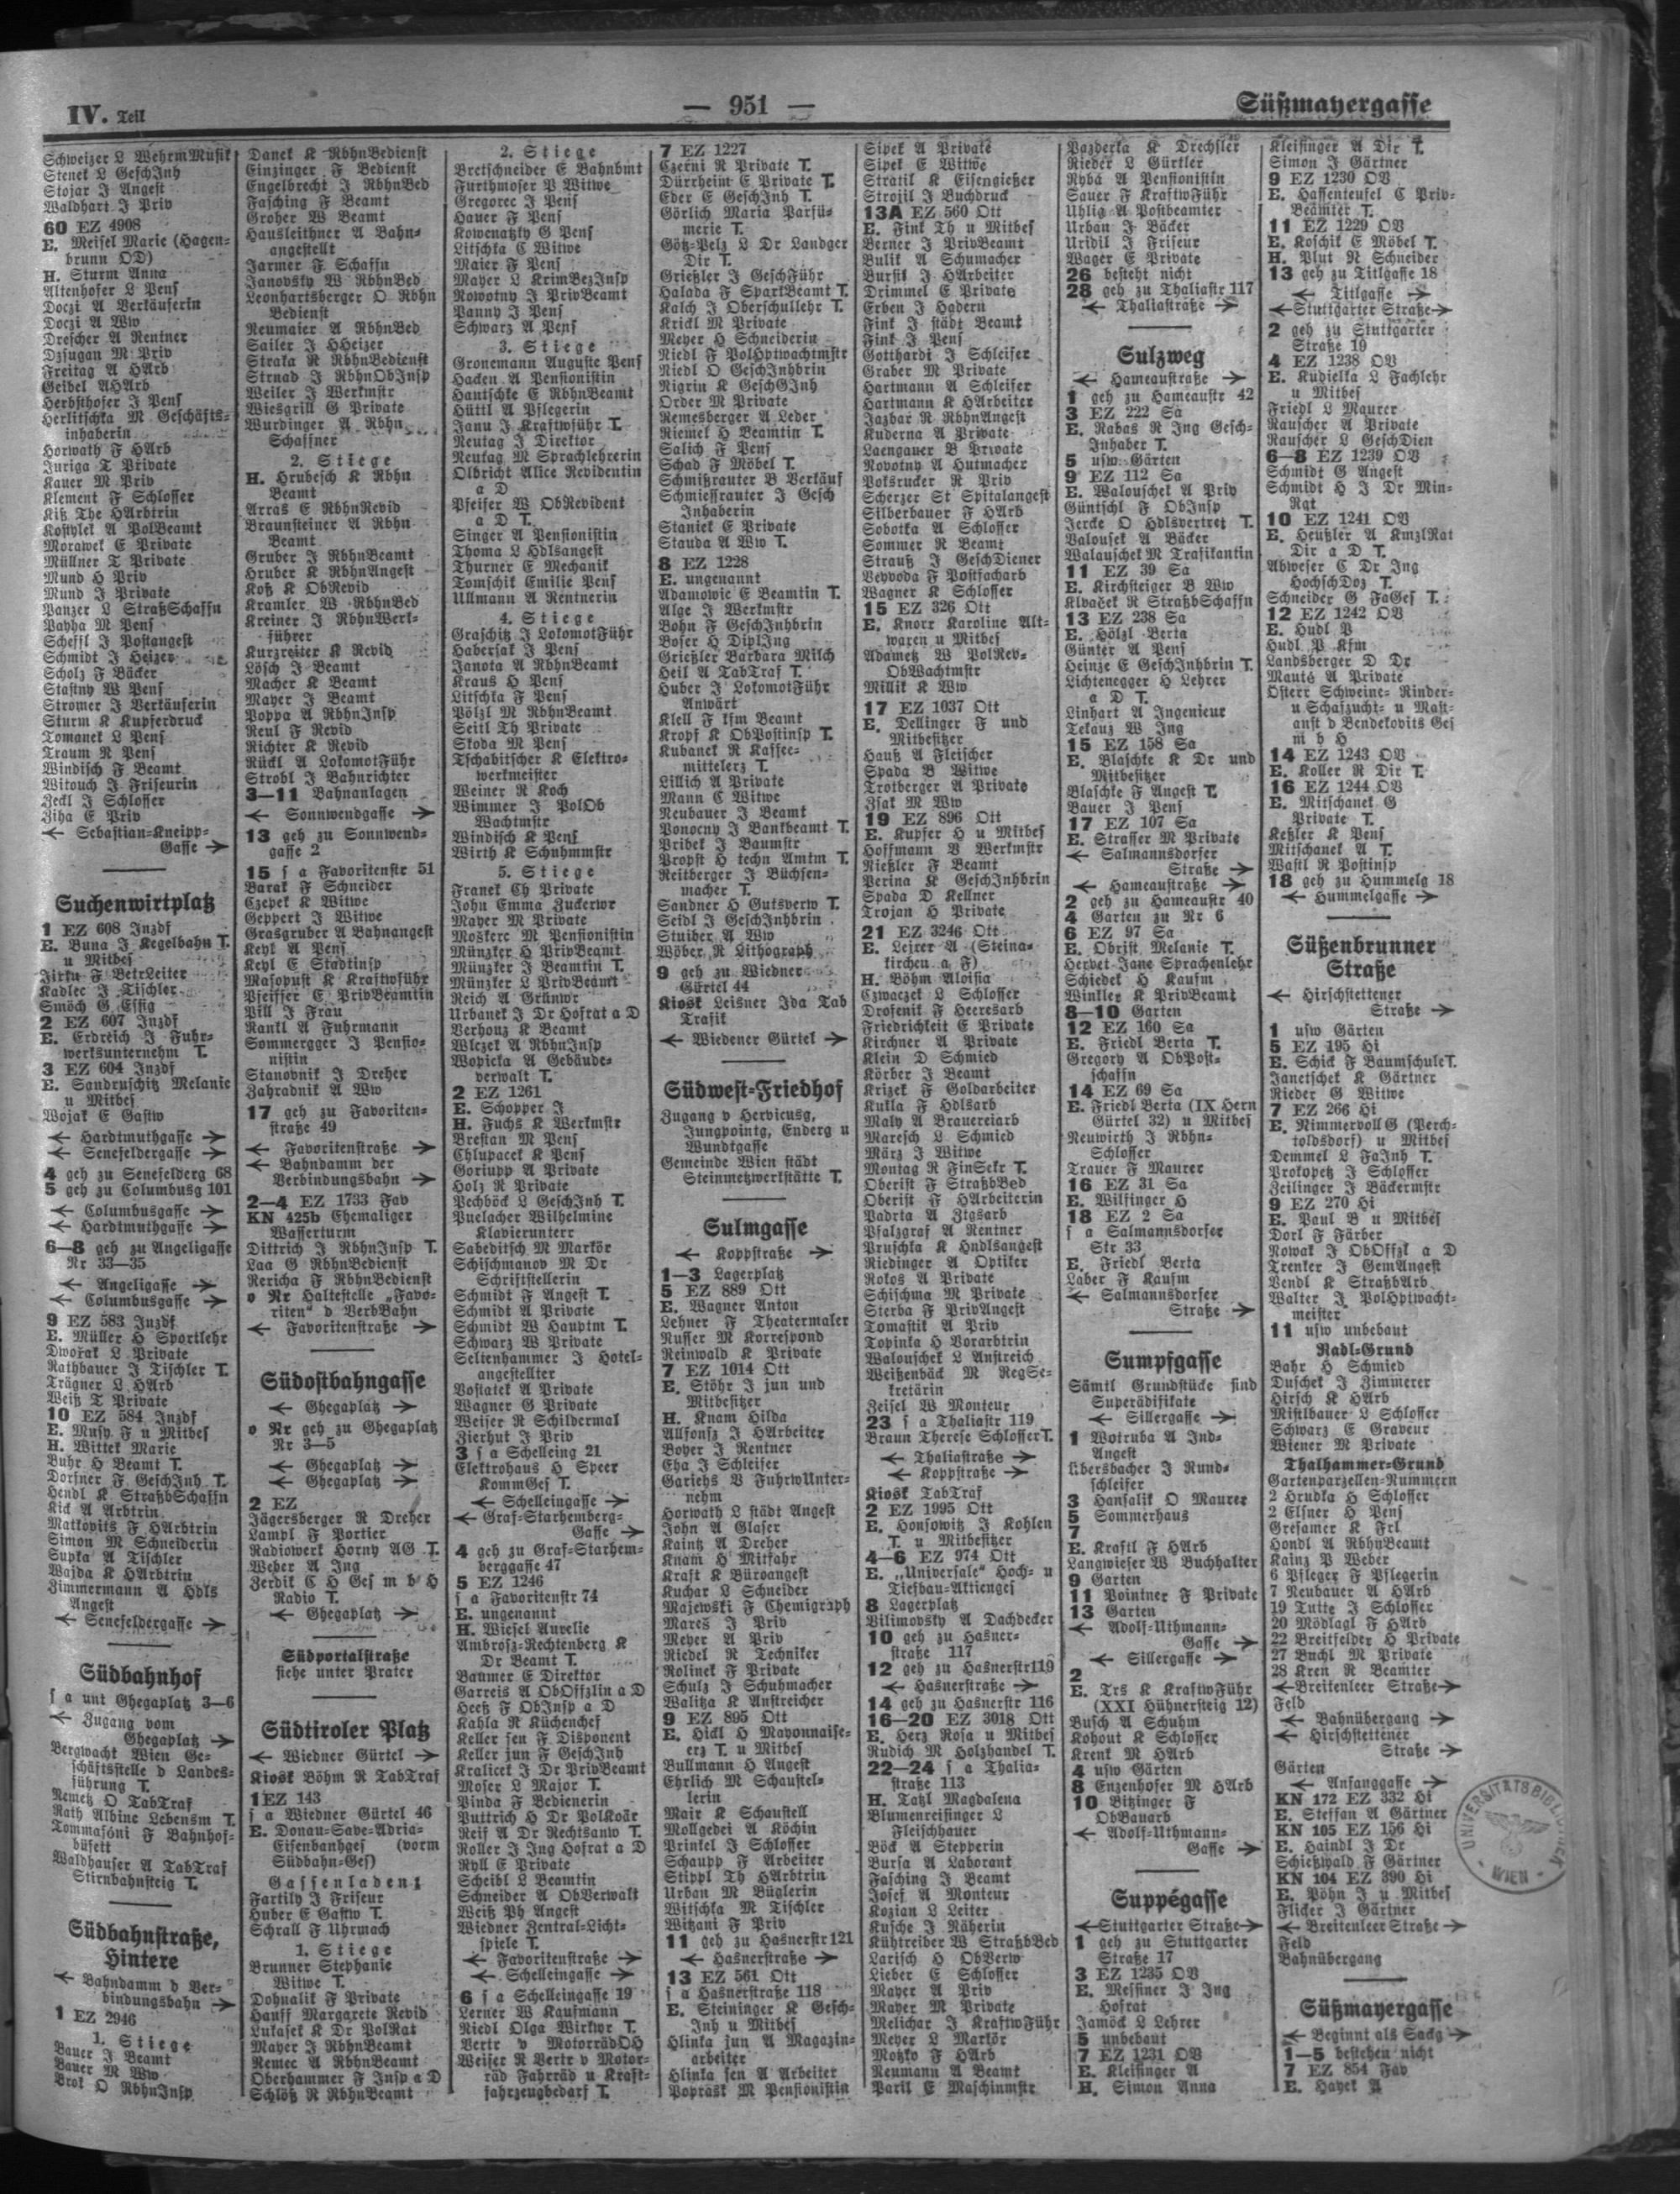 IV. Teil
— 951 —
Süßmayergasse
Schweizer L WehrmMusik
Stenek L GeschInh
Stojar J Angest
Waldhart J Priv
60 EZ 4908
E. Meisel Marie (Hagen-
brunn OD)
H. Sturm Anna
Altenhofer L Pens
Doczi A Verkäuferin
Doczi A Ww
Drescher A Rentner
Dzsugan M Priv
Freitag A HArb
Geibel AHArb
Herbsthofer J Pens
Herlitschka M Geschäfts-
inhaberin
Horwath F HArb
Juriga T Private
Kauer M Priv
Klement F Schlosser
Kiß The HArbtrin
Morawek E Private
Müllner T Private
Mund H Priv
Mund J Private
Panzer L StraßSchaffn
Payha M Pens
Scheffl J Postangest
Schmidt J Heizer
Scholz F Bäcker
Stastny W Pens
Stromer J Verkäuferin
Sturm K Kupferdruck
Tomanek L Pens
Traum R Pens
Windisch F Beamt
Witouch J Friseurin
Zeckl J Schlosser
Ziha E Priv
← Sebastian-Kneipp-
Gasse →
Suchenwirtplatz
1 EZ 608 Inzdf
E. Buna J Kegelbahn T.
u Mitbes
Jirku F BetrLeiter
Kadlec J Tischler
Smöch G Essig
2 EZ 607 Inzdf
E. Erdreich J Fuhr-
werksunternehm T.
3 EZ 604 Inzdf
E. Sandruschitz Melanie
u Mitbes
Wojak E Gastw
← Hardtmuthgasse →
← Senefeldergasse →
4 geh zu Senefelderg 68
5 geh zu Columbusg 101
← Columbusgasse →
← Hardtmuthgasse →
6—8 geh zu Angeligasse
Nr 33—35
← Angeligasse →
← Columbusgasse →
9 EZ 583 Inzdf
E. Müller H Sportlehr
Dworak L Private
Rathbauer J Tischler T.
Trägner L HArb
Weiß T Private
10 EZ 584 Inzdf
E. Musy F u Mitbes
H. Wittek Marie
Buhr H Beamt T.
Dorfner F GeschInh T.
Hendl K StraßbSchaffn
Kick A Arbtrin
Matkovits F HArbtrin
Simon M Schneiderin
Supka A Tischler
Wajda K HArbtrin
Zimmermann A Hdls
Angest
← Senefeldergasse →
Südbahnhof
s a unt Ghegaplatz 3—6
← Zugang vom
Ghegaplatz →
Bergwacht Wien Ge-
schäftsstelle d Landes-
führung T.
Nemetz O TabTraf
Rath Albine Lebensm T.
Tommasoni F Bahnhof-
büfett
Waldhauser A TabTraf
Stirnbahnsteig T.
Südbahnstraße,
Hintere
← Bahndamm d Ver-
bindungsbahn →
1 EZ 2946
1. Stiege
Bauer J Beamt
Bauer M Ww
Brok O RbhnInsp
Danek K RbhnBedienst
Einzinger F Bedienst
Engelbrecht J RbhnBed
Fasching F Beamt
Groher W Beamt
Hausleithner A Bahn-
angestellt
Jarmer F Schaffn
Janovsky W RbhnBed
Leonhartsberger O Rbhn
Bedienst
Neumaier A RbhnBed
Sailer J HHeizer
Straka R RbhnBedienst
Strnad J RbhnObInsp
Weiler J Werkmstr
Wiesgrill G Private
Wurdinger A Rbhn
Schaffner
2. Stiege
H. Hrubesch K Rbhn
Beamt
Arras E RbhnRevid
Braunsteiner A Rbhn
Beamt
Gruber J RbhnBeamt
Hruber K RbhnAngest
Koß K ObRevid
Kramler W RbhnBed
Kreiner J RbhnWerk-
führer
Kurzreiter K Revid
Lösch J Beamt
Macher K Beamt
Mayer J Beamt
Poppa A RbhnInsp
Reul F Revid
Richter K Revid
Rückl A LokomotFühr
Strobl J Bahnrichter
3—11 Bahnanlagen
← Sonnwendgasse →
13 geh zu Sonnwend-
gasse 2
15 s a Favoritenstr 51
Barak F Schneider
Czepek K Witwe
Geppert J Witwe
Grasgruber A Bahnangest
Keyl A Pens
Keyl E Stadtinsp
Masopust K Kraftwführ
Pfeiffer E PrivBeamtin
Pill J Frau
Rankl A Fuhrmann
Sommergger J Pensio-
nistin
Stanovnik J Dreher
Zahradnik A Ww
17 geh zu Favoriten-
straße 49
← Favoritenstraße →
← Bahndamm der
Verbindungsbahn →
2—4 EZ 1733 Fav
KN 425b Ehemaliger
Wasserturm
Dittrich J RbhnInsp T.
Laa G RbhnBedienst
Rericha F RbhnBedienst
o Nr Haltestelle „Favo-
riten“ d VerbBahn
← Favoritenstraße →
Südostbahngasse
← Ghegaplatz →
o Nr geh zu Ghegaplatz
Nr 3—5
← Ghegaplatz →
← Ghegaplatz →
2 EZ
Jägersberger R Dreher
Lampl F Portier
Radiowerk Horny AG T.
Weber A Ing
Zerdik C H Ges m b H
Radio T.
← Ghegaplatz →
Südportalstraße
siehe unter Prater
Südtiroler Platz
← Wiedner Gürtel →
Kiosk Böhm R TabTraf
1 EZ 143
s a Wiedner Gürtel 46
E. Donau-Save-Adria-
Eisenbahnges (vorm
Südbahn-Ges)
Gassenladen:
Fartily J Friseur
Huber E Gastw T.
Schrall F Uhrmach
1. Stiege
Brunner Stephanie
Witwe T.
Dohnalik F Private
Hauff Margarete Revid
Lukasek K Dr PolRat
Mayer J RbhnBeamt
Nemec A RbhnBeamt
Oberhammer F Insp a D
Schlöß R RbhnBeamt
2. Stiege
Bretschneider E Bahnbmt
Furthmoser P Witwe
Gregorec J Pens
Hauer F Pens
Kowenatzky G Pens
Litschka C Witwe
Maier F Pens
Mayer L KrimBezInsp
Nowotny J PrivBeamt
Panny J Pens
Schwarz A Pens
3. Stiege
Gronemann Auguste Pens
Hacken A Pensionistin
Hantschke E RbhnBeamt
Hüttl A Pflegerin
Janu J Kraftwführ T.
Neutag J Direktor
Neutag M Sprachlehrerin
Olbricht Alice Revidentin
a D
Pfeifer W ObRevident
a D T.
Singer A Pensionistin
Thoma L Hdlsangest
Thurner E Mechanik
Tomschik Emilie Pens
Ullmann A Rentnerin
4. Stiege
Graschitz J LokomotFühr
Habersak J Pens
Janota A RbhnBeamt
Kraus H Pens
Litschka F Pens
Pölzl M RbhnBeamt
Seitl Th Private
Skoda M Pens
Tschabitscher K Elektro-
werkmeister
Weiner R Koch
Wimmer J PolOb
Wachtmstr
Windisch K Pens
Wirth K Schuhmmstr
5. Stiege
Franek Ch Private
John Emma Zuckerwr
Mayer M Private
Mozkerc M Pensionistin
Münzker H PrivBeamt
Münzker J Beamtin T.
Münzker L PrivBeamt
Reich A Grünwr
Urbanek J Dr Hofrat a D
Verhouz K Beamt
Wlczek A RbhnInsp
Wopicka A Gebäude-
verwalt T.
2 EZ 1261
E. Schopper J
H. Fuchs K Werkmstr
Brestan M Pens
Chlupacek K Pens
Goriupp A Private
Holz R Private
Pechböck L GeschInh T.
Puelacher Wilhelmine
Klavierunterr
Sabeditsch M Markör
Schischmanov M Dr
Schriftstellerin
Schmidt F Angest T.
Schmidt A Private
Schmidt W Hauptm T.
Schwarz W Private
Seltenhammer J Hotel-
angestellter
Vostatek A Private
Wagner G Private
Weiser R Schildermal
Zierhut J Priv
3 s a Schelleing 21
Elektrohaus H Speer
KommGes T.
← Schelleingasse →
← Graf-Starhemberg-
Gasse →
4 geh zu Graf-Starhem-
berggasse 47
5 EZ 1246
s a Favoritenstr 74
E. ungenannt
H. Wiesel Aurelie
Ambrosz-Rechtenberg K
Dr Beamt T.
Baumer E Direktor
Garreis A ObOffzlin a D
Heeß F ObInsp a D
Kahla R Küchenchef
Keller sen F Disponent
Keller jun F GeschInh
Kralicek J Dr PrivBeamt
Moser L Major T.
Pinda F Bedienerin
Puttrich H Dr PolKoär
Reif A Dr Rechtsanw T.
Roller J Ing Hofrat a D
Ryll E Private
Scheibl L Beamtin
Schneider A ObVerwalt
Weiß Ph Angest
Wiedner Zentral-Licht-
spiele T.
← Favoritenstraße →
← Schelleingasse →
6 s a Schelleingasse 19
Lerner W Kaufmann
Riedl Olga Wirkwr T.
Vertr v MotorrädOH
Weiser R Vertr v Motor-
räd Fahrräd u Kraft-
fahrzeugbedarf T.
7 EZ 1227
Czerni R Private T.
Dürrheim E Private T.
Eder E GeschInh T.
Görlich Maria Parfü-
merie T.
Götz-Pelz L Dr Landger
Dir T.
Grießler J GeschFühr
Halada F SparkBeamt T.
Kalch J Oberschullehr T.
Krickl M Private
Meyer H Schneiderin
Riedl F PolHptwachtmstr
Riedl O GeschInhbrin
Nigrin K GeschGInh
Order M Private
Remesberger A Leder
Riemek H Beamtin T.
Salich F Pens
Schad F Möbel T.
Schmißrauter B Verkäuf
Schmiessrauter J Gesch
Inhaberin
Staniek E Private
Stauda A Ww T.
8 EZ 1228
E. ungenannt
Adamowic E Beamtin T.
Alge J Werkmstr
Bohn F GeschInhbrin
Boser H DiplIng
Grießler Barbara Milch
Heil A TabTraf T.
Huber J LokomotFühr
Anwärt
Klell F kfm Beamt
Kropf K ObPostinsp T.
Kubanek R Kaffee-
mittelerz T.
Lillich A Private
Mann C Witwe
Neubauer J Beamt
Ponocny J Bankbeamt T.
Pribek J Baumstr
Propst H techn Amtm T.
Reitberger J Büchsen-
macher T.
Sandner H Gutsverw T.
Seidl J GeschInhbrin
Stuiber A Ww
Wöber R Lithograph
9 geh zu Wiedner
Gürtel 44
Kiosk Leisner Ida Tab
Trafik
← Wiedener Gürtel →
Südwest-Friedhof
Zugang v Hervicusg,
Jungpointg, Enderg u
Wundtgasse
Gemeinde Wien städt
Steinmetzwerkstätte T.
Sulmgasse
← Koppstraße →
1—3 Lagerplatz
5 EZ 889 Ott
E. Wagner Anton
Lehner F Theatermaler
Nusser M Korrespond
Reinwald K Private
7 EZ 1014 Ott
E. Stöhr J jun und
Mitbesitzer
H. Knam Hilda
Allfonsz J HArbeiter
Boyer J Rentner
Eha J Schleifer
Gariehs V FuhrwUnter-
nehm
Horwath L städt Angest
John A Glaser
Kaintz A Dreher
Knam H Mitfahr
Kraft K Büroangest
Kuchar L Schneider
Majewski F Chemigraph
Mares J Priv
Meyer A Priv
Riedel R Techniker
Rolinek F Private
Schulz J Schuhmacher
Walitza K Anstreicher
9 EZ 895 Ott
E. Hickl H Mayonnaise-
erz T. u Mitbes
Bullmann H Angest
Ehrlich M Schaustel-
lerin
Mair K Schaustell
Mollgedei A Köchin
Prinkel J Schlosser
Schaupp F Arbeiter
Stippl Th HArbtrin
Urban M Büglerin
Witschka M Tischler
Witzani F Priv
11 geh zu Hasnerstr 121
← Hasnerstraße →
13 EZ 561 Ott
s a Hasnerstraße 118
E. Steininger K Gesch-
Inh u Mitbes
Hlinka jun A Magazin-
arbeiter
Hlinka sen A Arbeiter
Poprask M Pensionistin
Sipek A Private
Sipek E Witwe
Stratil K Eisengießer
Strozil J Buchdruck
13A EZ 560 Ott
E. Fink Th u Mitbes
Berner J PrivBeamt
Bulik A Schumacher
Burstl J HArbeiter
Drimmel E Private
Erben J Hadern
Fink J städt Beamt
Fink J Pens
Gotthardi J Schleifer
Graber M Private
Hartmann A Schleifer
Hartmann K HArbeiter
Jazbar R RbhnAngest
Kuderna A Private
Laengauer B Private
Novotny A Hutmacher
Poksrucker R Priv
Scherzer St Spitalangest
Silberbauer F HArb
Sobotka A Schlosser
Sommer R Beamt
Strauß J GeschDiener
Veyvoda F Postfacharb
Wagner K Schlosser
15 EZ 326 Ott
E. Knorr Karoline Alt-
waren u Mitbes
Adametz W PolRev-
ObWachtmstr
Millik K Ww
17 EZ 1037 Ott
E. Dellinger F und
Mitbesitzer
Hauß A Fleischer
Spada B Witwe
Trotberger A Private
Zsak M Ww
19 EZ 896 Ott
E. Kupfer H u Mitbes
Hoffmann B Werkmstr
Nießler F Beamt
Perina K GeschInhbrin
Spada D Kellner
Trojan H Private
21 EZ 3246 Ott
E. Lejrer A (Steina-
kirchen a F)
H. Böhm Aloisia
Czwaczek L Schlosser
Drosenik F Heeresarb
Friedrichkeit E Private
Kirchner A Private
Klein D Schmied
Körber J Beamt
Krizek F Goldarbeiter
Kukla F Hdlsarb
Maly A Brauereiarb
Maresch L Schmied
März J Witwe
Montag R FinSekr T.
Oberist F StraßbBed
Oberist F HArbeiterin
Padrta A Ztgsarb
Pfalzgraf A Rentner
Pruschka K Hndlsangest
Riedinger A Optiker
Rokos A Private
Schischma M Private
Sterba F PrivAngest
Tomastik A Priv
Topinka H Vorarbtrin
Walouschek L Anstreich
Weißenbäck M RegSe-
kretärin
Zeisel W Monteur
23 s a Thaliastr 119
Braun Therese Schlosser T.
← Thaliastraße →
← Koppstraße →
Kiosk TabTraf
2 EZ 1995 Ott
E. Honsowitz J Kohlen
T. u Mitbesitzer
4—6 EZ 974 Ott
E. „Universale“ Hoch- u
Tiefbau-Aktienges
8 Lagerplatz
Vilimovsky A Dachdecker
10 geh zu Hasner-
straße 117
12 geh zu Hasnerstr119
← Hasnerstraße →
14 geh zu Hasnerstr 116
16—20 EZ 3018 Ott
E. Herz Rosa u Mitbes
Rudich M Holzhandel T.
22—24 s a Thalia-
straße 113
H. Tatzl Magdalena
Blumenreisinger L
Fleischhauer
Böck A Stepperin
Bursa A Laborant
Fasching J Beamt
Josef A Monteur
Kozian L Leiter
Kusche J Näherin
Kühtreiber W StraßbBed
Larisch H ObVerw
Lieber E Schlosser
Mayer A Priv
Mayer M Private
Melichar J KraftwFühr
Meyer L Markör
Motzko F HArb
Neumann A Beamt
Paril E Maschinmstr
Pazderka K Drechsler
Rieder L Gürtler
Ryba A Pensionistin
Sauer F KraftwFühr
Uhlig A Postbeamter
Urban J Bäcker
Uridil J Friseur
Wager E Private
26 besteht nicht
28 geh zu Thaliastr 117
← Thaliastraße →
Sulzweg
← Hameaustraße →
1 geh zu Hameaustr 42
3 EZ 222 Sa
E. Nabas R Ing Gesch-
Inhaber T.
5 usw Gärten
9 EZ 112 Sa
E. Walouschek A Priv
Güntschl F ObInsp
Jercke O Hdlsvertret T.
Valousek A Bäcker
Walauschek M Trafikantin
11 EZ 39 Sa
E. Kirchsteiger B Ww
Klvacek R StraßbSchaffn
13 EZ 238 Sa
E. Hölzl Berta
Günter A Pens
Heinze E GeschInhbrin T.
Lichtenegger H Lehrer
a D T.
Linhart A Ingenieur
Tekauz W Ing
15 EZ 158 Sa
E. Blaschke K Dr und
Mitbesitzer
Blaschke F Angest T.
Bauer J Pens
17 EZ 107 Sa
E. Strasser M Private
← Salmannsdorfer
Straße →
← Hameaustraße →
2 geh zu Hameaustr 40
4 Garten zu Nr 6
6 EZ 97 Sa
E. Obrist Melanie T.
Hervet Jane Sprachenlehr
Schiedek H Kaufm
Winkler K PrivBeamt
8—10 Garten
12 EZ 160 Sa
E. Friedl Berta T.
Gregory A ObPost-
schaffn
14 EZ 69 Sa
E. Friedl Berta (IX Hern
Gürtel 32) u Mitbes
Neuwirth J Rbhn-
Schlosser
Trauer F Maurer
16 EZ 31 Sa
E. Wilfinger H
18 EZ 2 Sa
s a Salmannsdorfer
Str 33
E. Friedl Berta
Laber F Kaufm
← Salmannsdorfer
Straße →
Sumpfgasse
Sämtl Grundstücke sind
Superädifikate
← Sillergasse →
1 Wotruba A Ind-
Angest
Übersbacher J Rund-
schleifer
3 Hansalik O Maurer
5 Sommerhaus
7
E. Krastl F HArb
Langwieser W Buchhalter
9 Garten
11 Pointner F Private
13 Garten
← Adolf-Uthmann-
Gasse →
← Sillergasse →
2
E. Trs K KraftwFühr
(XXI Hühnersteig 12)
Busch A Schuhm
Kohout K Schlosser
Krenk M HArb
4 usw Gärten
8 Enzenhofer M HArb
10 Bitzinger F
ObBauarb
← Adolf-Uthmann-
Gasse →
Suppégasse
← Stuttgarter Straße →
1 geh zu Stuttgarter
Straße 17
3 EZ 1235 OV
E. Messiner J Ing
Hofrat
Jamöck L Lehrer
5 unbebaut
7 EZ 1231 OV
E. Kleisinger A
H. Simon Anna
Kleisinger A Dir T.
Simon J Gärtner
9 EZ 1230 OV
E. Hassenteufel C Priv-
Beamter T.
11 EZ 1229 OV
E. Koschik E Möbel T.
H. Plut R Schneider
13 geh zu Titlgasse 18
← Titlgasse →
← Stuttgarter Straße →
2 geh zu Stuttgarter
Straße 19
4 EZ 1238 OV
E. Kudiella L Fachlehr
u Mitbes
Friedl L Maurer
Rauscher A Private
Rauscher L GeschDien
6—8 EZ 1239 OV
Schmidt G Angest
Schmidt H J Dr Min-
Rat
10 EZ 1241 OV
E. Heußler A KmzlRat
Dir a D T.
Abweser C Dr Ing
HochschDoz T.
Schneider G FaGes T.
12 EZ 1242 OV
E. Hudl P
Hudl P Kfm
Landsberger D Dr
Mauté A Private
Österr Schweine- Rinder-
u Schafzucht- u Mast-
anst d Bendekovits Ges
m b H
14 EZ 1243 OV
E. Koller R Dir T.
16 EZ 1244 OV
E. Mitschanek G
Private T.
Keßler K Pens
Mitschanek A T.
Wastl R Postinsp
18 geh zu Hummelg 18
← Hummelgasse →
Süßenbrunner
Straße
← Hirschstettener
Straße →
1 usw Gärten
5 EZ 195 Hi
E. Schick F Baumschule T.
Janetschek K Gärtner
Rieder G Witwe
7 EZ 266 Hi
E. Nimmervoll G (Perch-
toldsdorf) u Mitbes
Demmel L FaInh T.
Prokopetz J Schlosser
Zeilinger J Bäckermstr
9 EZ 270 Hi
E. Paul B u Mitbes
Dorl F Färber
Nowak J ObOffzl a D
Trenker J GemAngest
Vendl K StraßbArb
Walter J PolHptwacht-
meister
11 usw unbebaut
Radl-Grund
Bahr H Schmied
Duschek J Zimmerer
Hirsch K HArb
Mistlbauer L Schlosser
Schwarz E Graveur
Wiener M Private
Thalhammer-Grund
Gartenparzellen-Nummern
2 Hrudka H Schlosser
2 Elsner H Pens
Gresamer K Frl
Hondl A RbhnBeamt
Kainz P Weber
6 Pfleger F Pflegerin
7 Neubauer A HArb
19 Tutte J Schlosser
20 Mödlagl F HArb
22 Breitfelder H Private
27 Buchl M Private
28 Kren R Beamter
← Breitenleer Straße →
Feld
← Bahnübergang →
← Hirschstettener
Straße →
Gärten
← Anfanggasse →
KN 172 EZ 332 Hi
E. Steffan A Gärtner
KN 105 EZ 156 Hi
E. Haindl J Dr
Schießwald F Gärtner
KN 104 EZ 390 Hi
E. Pöhn J u Mitbes
Flicker J Gärtner
← Breitenleer Straße →
Feld
Bahnübergang
Süßmayergasse
← Beginnt als Sackg →
1—5 bestehen nicht
7 EZ 854 Fav
E. Hayek A
UNIVERSITÄTSBIBLIOTHEK WIEN